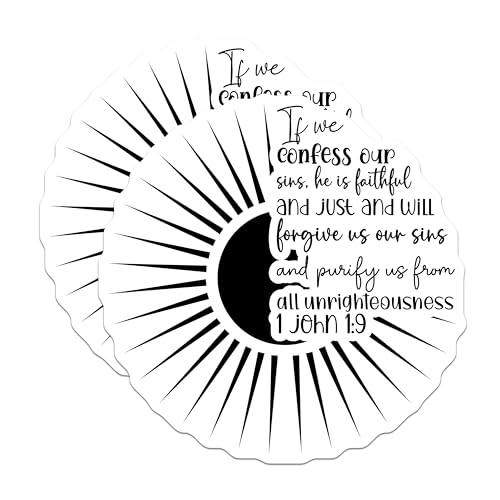 If we
confess our
If we
confess our
sins, he is faithful
and just and will
forgive us our sins
and purify us from
all unrighteousness
1 John 1:9